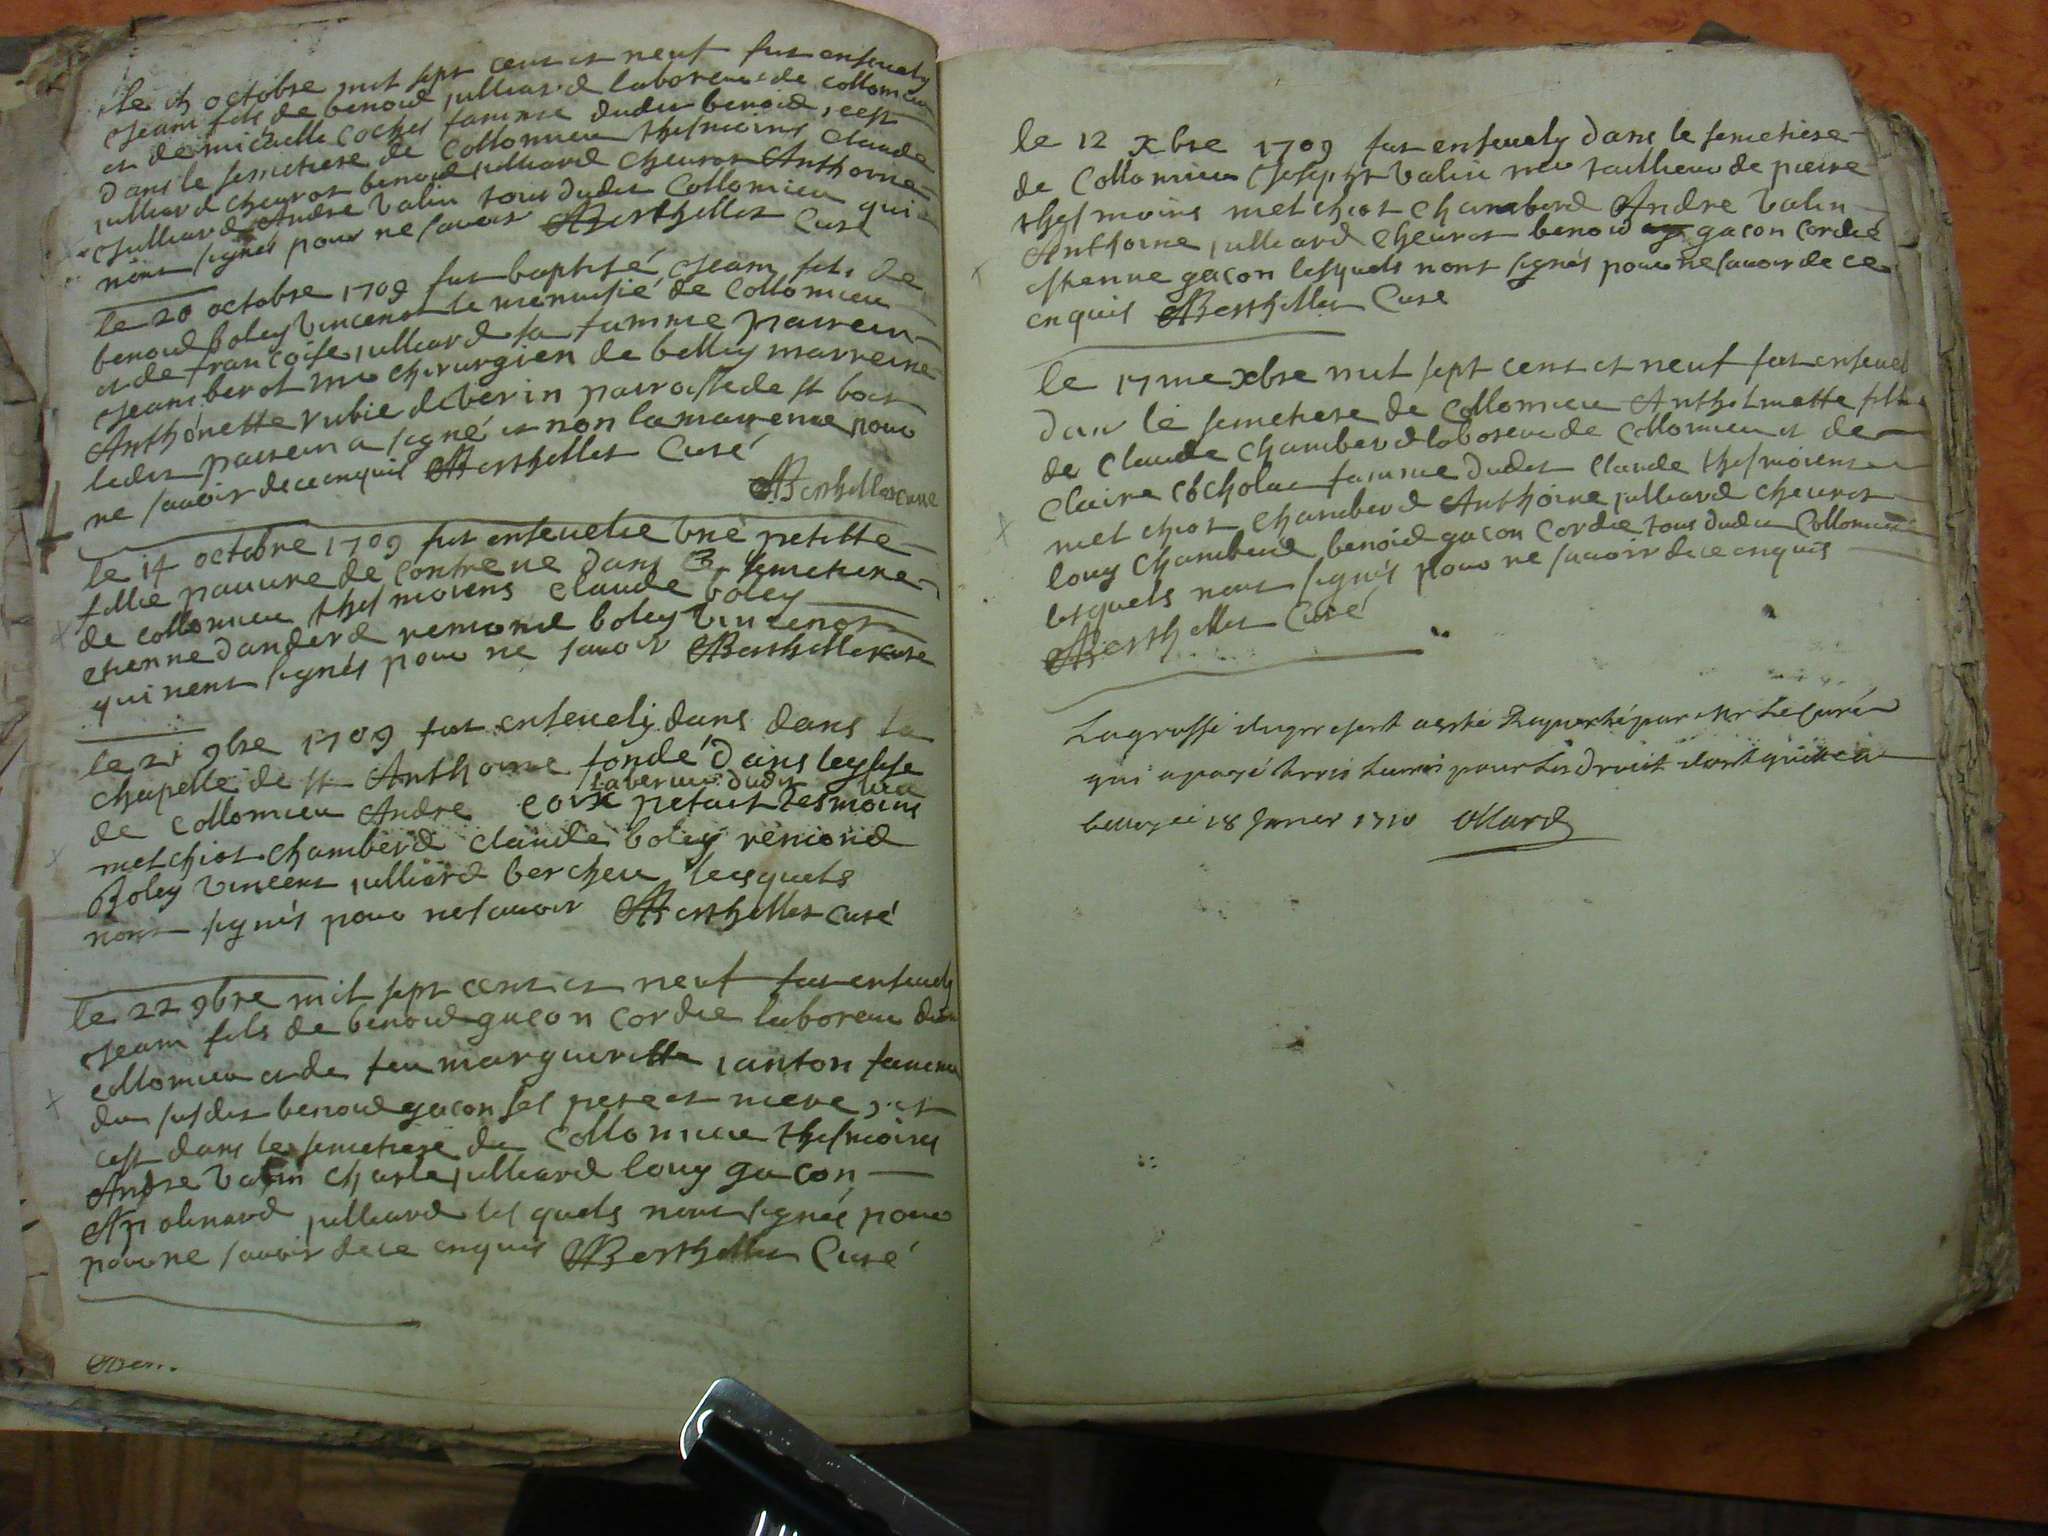 octobre mil sept cens et neuf fut ensevely
Jeam fils de benoid julliard laboreur de collomieu
et de michelle coches famme dudit benoid, cest
dans le semetiere de Collomieu thesmoins Claude
julliard cheurot benoid julliard cheurot Anthoine
Julliard Andre Valin tous dudit Collomieu qui
nont signés pour ne savoir Berthellet Curé
le 20 octobre 1709 fut baptisé Jeam fils de
benoid boley Vincenot le menuisié de Collomieu
et de francoise julliard sa famme parrein
Jeam berot chirurgien de belley marreine
Anthonette rubie de Verin parroisse de st bois
ledit parrein a signé et non la marreine pour
ne savoir de ce enquis Berthellet Curé
Berthellet curé
le 14 octobre 1709 fut ensevelie une petitte
fillie pauvre de dans semetiere
de collomieu thesmoiens claude boley
etienne danderd remond boley Vincenot
qui nont signés pour ne savoir Berthellet curé
le 21 9bre 1709 fut ensevely dans dans la
chapelle de st Anthoine fondé dans leglise
laboreur dudit lieu
de collomieu Andre petit tesmoins
melchiot chamberd claude boley remond
Boley Vincent julliard bercheu lesquels
nont signés pour ne savoir Berthellet curé
le 22 9bre mil sept cens et neuf fut ensevely
Jeam fils de benoid gacon cordie laboreur de
collomieu et de feu margueritte janton famme
du susdit benoid gacon ses pere et mere, et
cest dans le semetiere de Collomieu thesmoins
Andre Valin charle julliard louy gacon
Apolinard julliard les quels nont signés pour
pour ne savoir de ce enquis Berthellet Curé
le 12 xbre 1709 fut ensevely dans le semetiere
de Collomieu Joseph Valin taillieur de pierre
thesmoins melchiot chamberd Andre Valin
Anthoine julliard cheurot benoid gacon cordié
estienne gacon lesquels nont signés pour ne savoir de ce
enquis Berthellet Curé
le 17me xbre mil sept cent et neuf fut ensevel
dans le semetiere de Collomieu Anthelmette fillie
de Claude Chamberd laboreur de Collomieu et de
Claire famme dudit Claude thesmoiens
melchiot chamberd Anthoine julliard cheurot
louy chamberd benoid gacon Cordie tous dudit Collomieu
lesquels nont signés pour ne savoir de ce enquis
Berthellet Curé
La grosse du present a esté Raporté par Mr Le Curé
qui a payé trois Livres pour Les droits dont quitte a
belley ce 18 Janvier 1710 Ollard